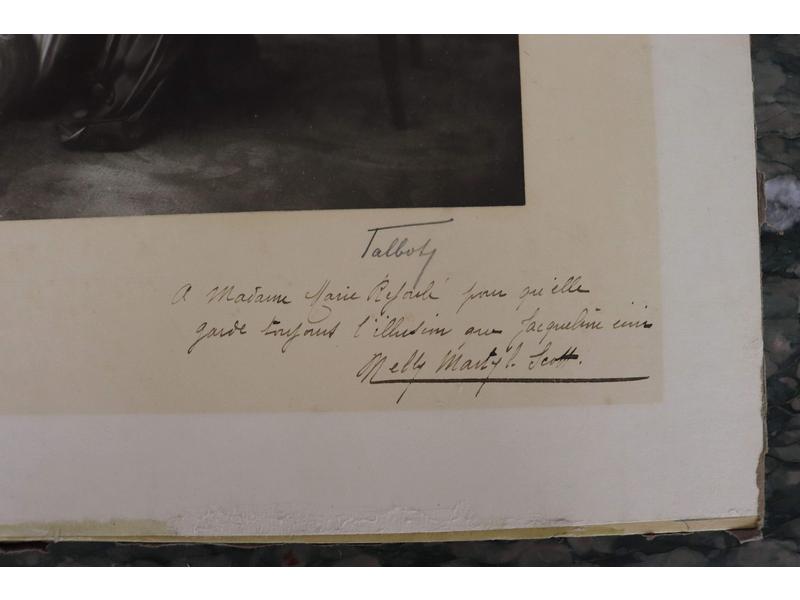 Talbot
A Madame Marie Refoulé pour qu'elle
garde toujours l'illusion que Jacqueline
Nelly Martyl. Scott.